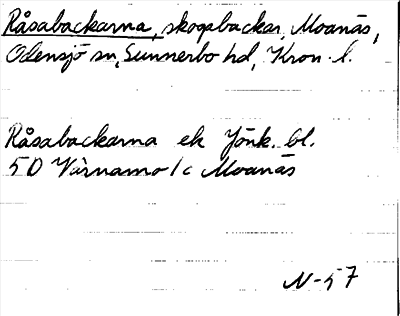 Råsabackarna, skogsbackar, Moanäs,
Odensjö sn, Sunnerbo hd, Kron. l.
Råsabackarna ek Jönk. bl.
5D Värnamo 1c Moanäs
N-57